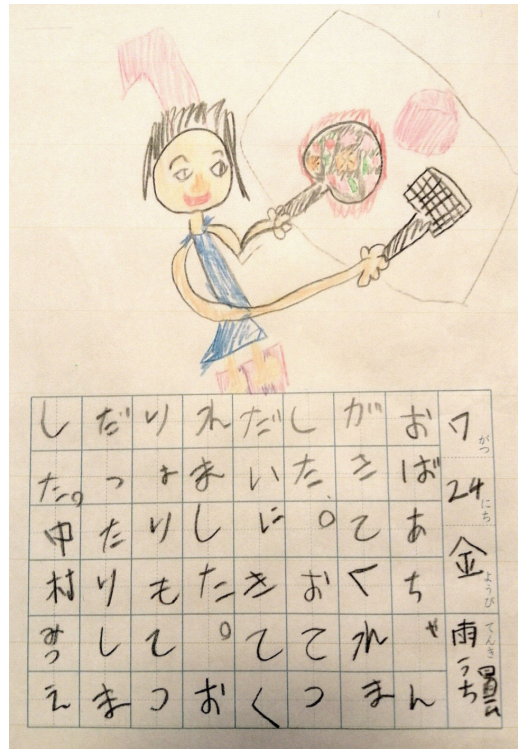 7がつ24にち金ようびてんき雨うち曇
おばあちゃん
がきてくれま
した。おてつ
だいにきてく
れました。お
りょりもてつ
だったりしま
した。中村みつえ